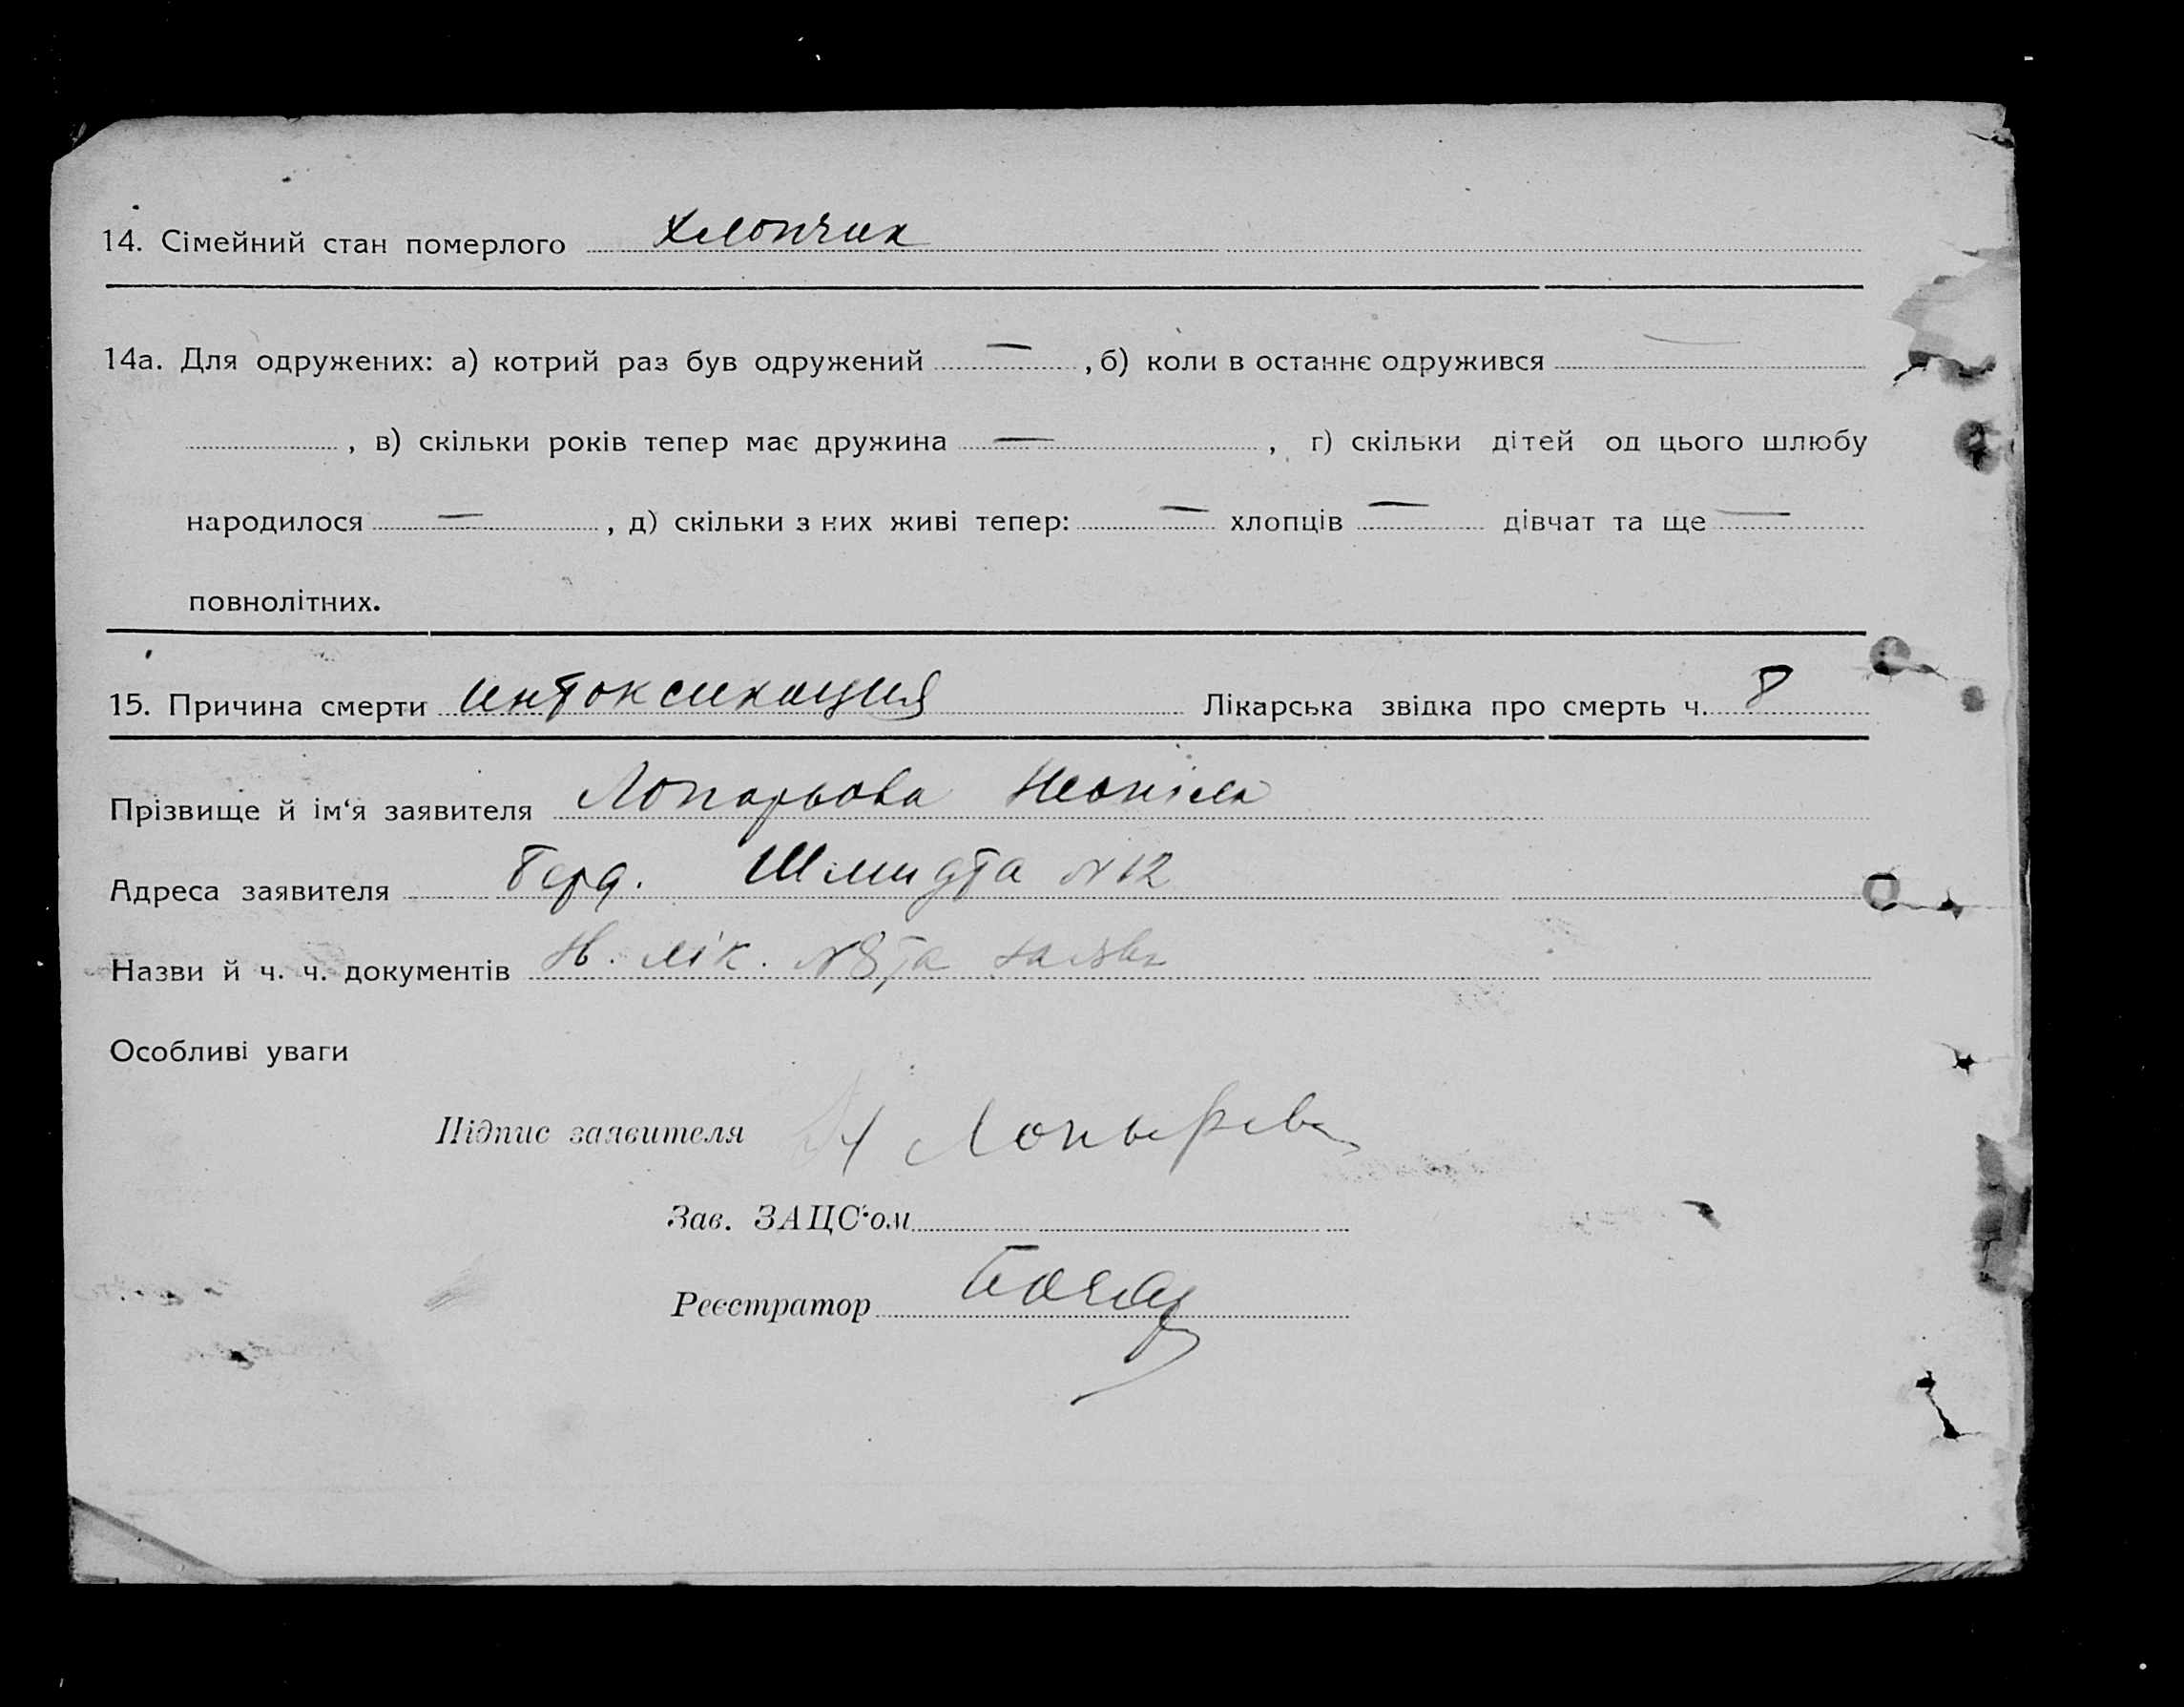 14. Сімейний стан померлого хлопчик
14а. Для одружених: а) котрий раз був одружений — , б) коли в останнє одружився —
, в) скільки років тепер має дружина — , г) скільки дітей од цього шлюбу
народилося — , д) скільки з них живі тепер: — хлопців — дівчат та ще —
повнолітних.
15. Причина смерти интоксикация Лікарська звідка про смерть ч. 8
Прізвище й ім‘я заявителя Лопарьова Неоніла
Адреса заявителя Берд. Шмидта N 12
Назви й ч. ч. документів лік. N 8 та
Особливі уваги
Підпис заявителя Н Лопырева
Зав. ЗАЦС‘ом
Реєстратор